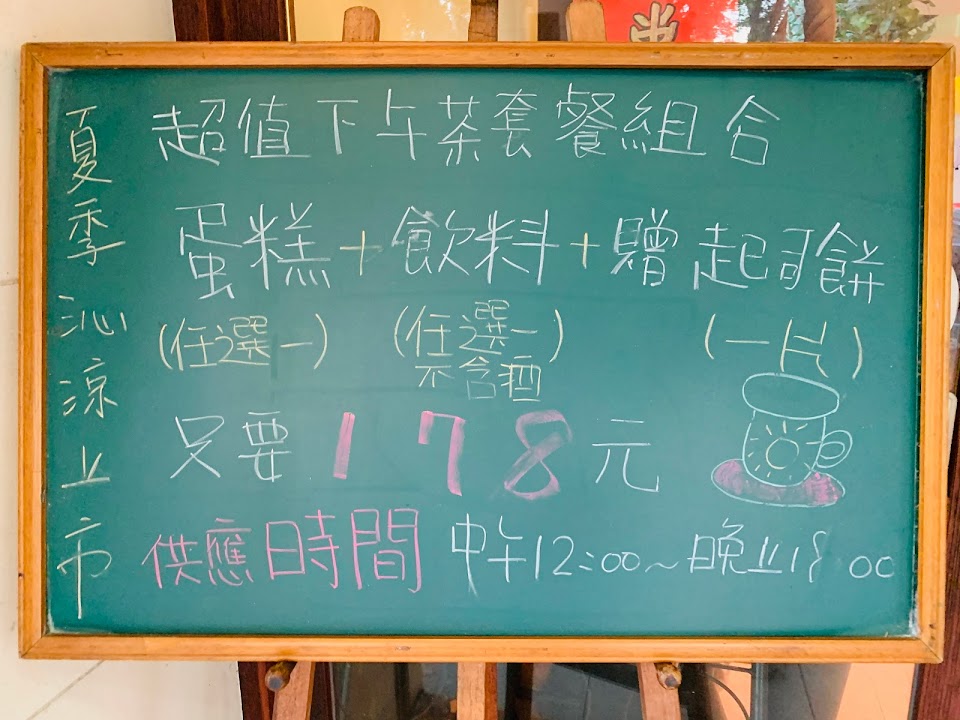 夏季沁涼上市
超值下午茶套餐組合
蛋糕+飲料+贈起司餅
(任選一) (任選一不含酒) (一片)
只要178元
供應時間 中午12:00~晚上18:00